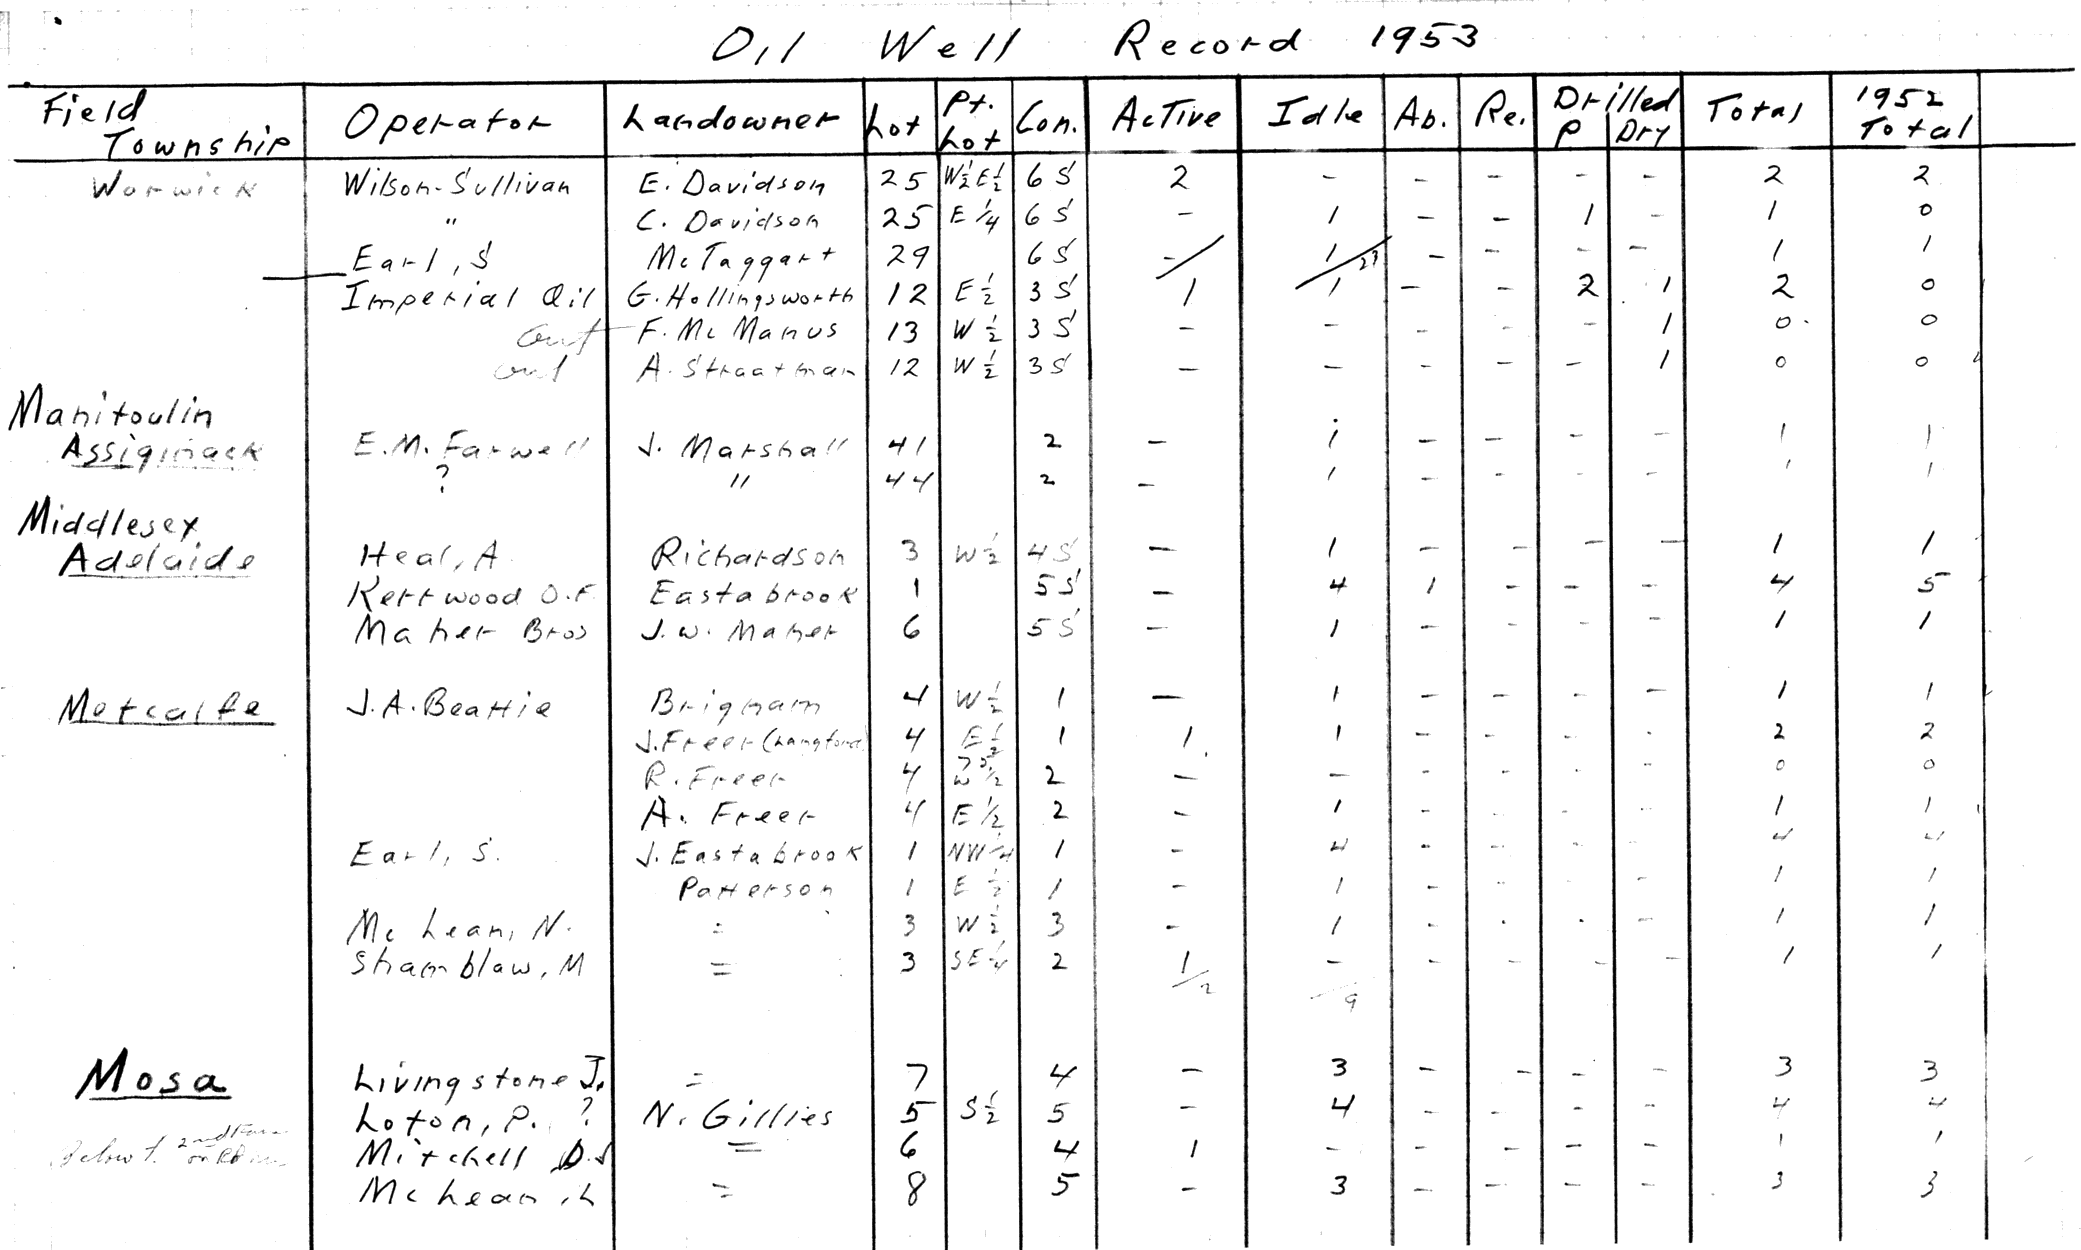 Oil Well Record 1953
Field Township Operator Landowner Lot Pt. Lot Con. Active Idle Ab. Re. Drilled P Dry Total 1952 Total
Warwick Wilson-Sullivan E. Davidson 25 W½E½ 6 S 2 - - - - - 2 2
" C. Davidson 25 E 1/4 6 S - 1 - - 1 - 1 0
Earl, S McTaggart 29 6 S - 1 - - - - 1 1
Imperial Oil G. Hollingsworth 12 E ½ 3 S 1 1 - - 2 1 2 0
out F. McManus 13 W ½ 3 S - - - - - 1 0 0
out A. Straatman 12 W ½ 3 S - - - - - 1 0 0
Manitoulin
Assiginack E.M. Farwell J. Marshall 41 2 - 1 - - - - 1 1
? " 44 2 - 1 - - - - 1 1
Middlesex
Adelaide Heal, A. Richardson 3 W ½ 4 S - 1 - - - - 1 1
Kerrwood O.F. Eastabrook 1 5 S - 4 1 - - - 4 5
Maher Bros J.W. Maher 6 5 S - 1 - - - - 1 1
Metcalfe J.A. Beattie Brigham 4 W ½ 1 - 1 - - - - 1 1
J. Freer (Langford) 4 E ½ 1 1 1 - - - - 2 2
R. Freer 4 W ½ 2 - - - - - - 0 0
A. Freer 4 E 1/2 2 - 1 - - - - 1 1
Earl, S. J. Eastabrook 1 NW 1/4 1 - 4 - - - - 4 4
Patterson 1 E ½ 1 - 1 - - - - 1 1
McLean, N. = 3 W ½ 3 - 1 - - - - 1 1
Shamblaw, M = 3 SE ¼ 2 1 - - - - - 1 1
2 9
Mosa Livingstone J. = 7 4 - 3 - - - - 3 3
Loton, P. ? N. Gillies 5 S ½ 5 - 4 - - - - 4 4
Mitchell D.S = 6 4 1 - - - - - 1 1
McLean, L = 8 5 - 3 - - - - 3 3